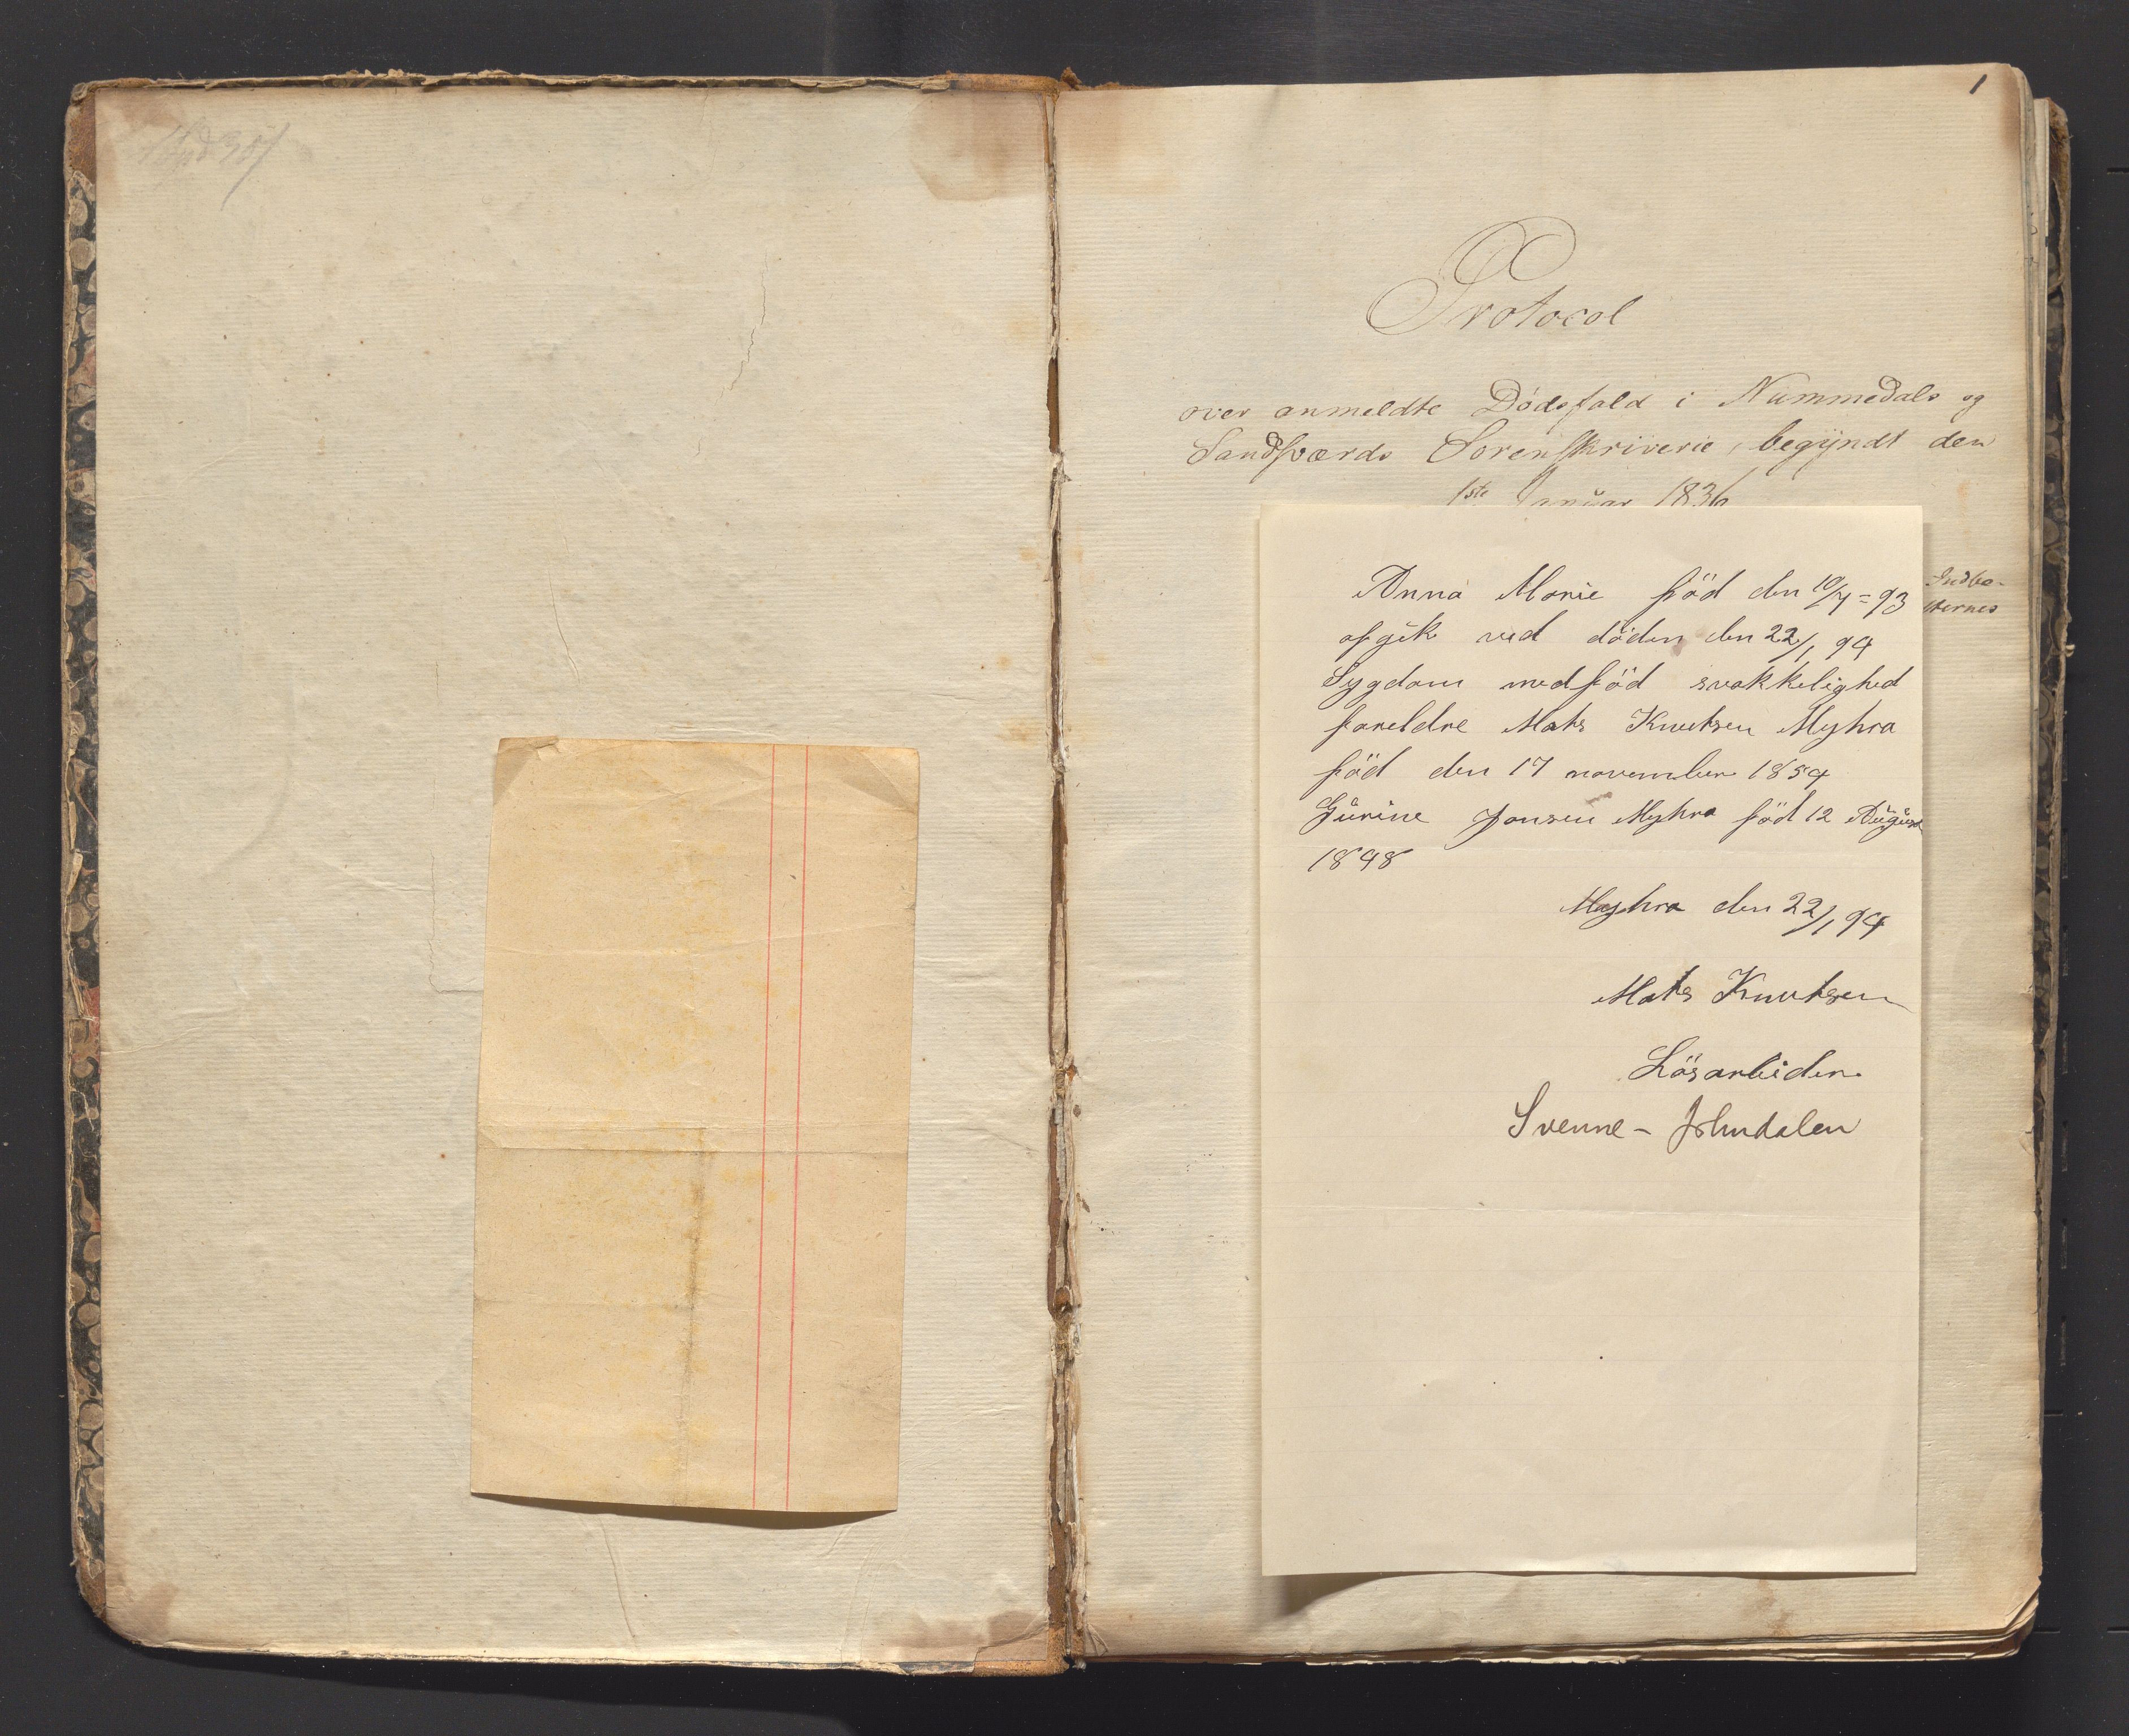 1
Protocol
over anmeldte Dödsfald i Nummedals og
Sandsværds Sorenskriverie, begyndt den
1ste Januar 1836
Indbe-
Anna Marie född den 10/7 = 93
afgik ved döden den 22/1 94
Sygdom medföd svakkelighed
foreldre Mats Knutsen Myhra
född den 17 november 1854
Gurine Jonsen Myhra född 12 August
1848
Myhra den 22/1 94
Mats Knutsen
Lösarbider
Svenne - Johndalen